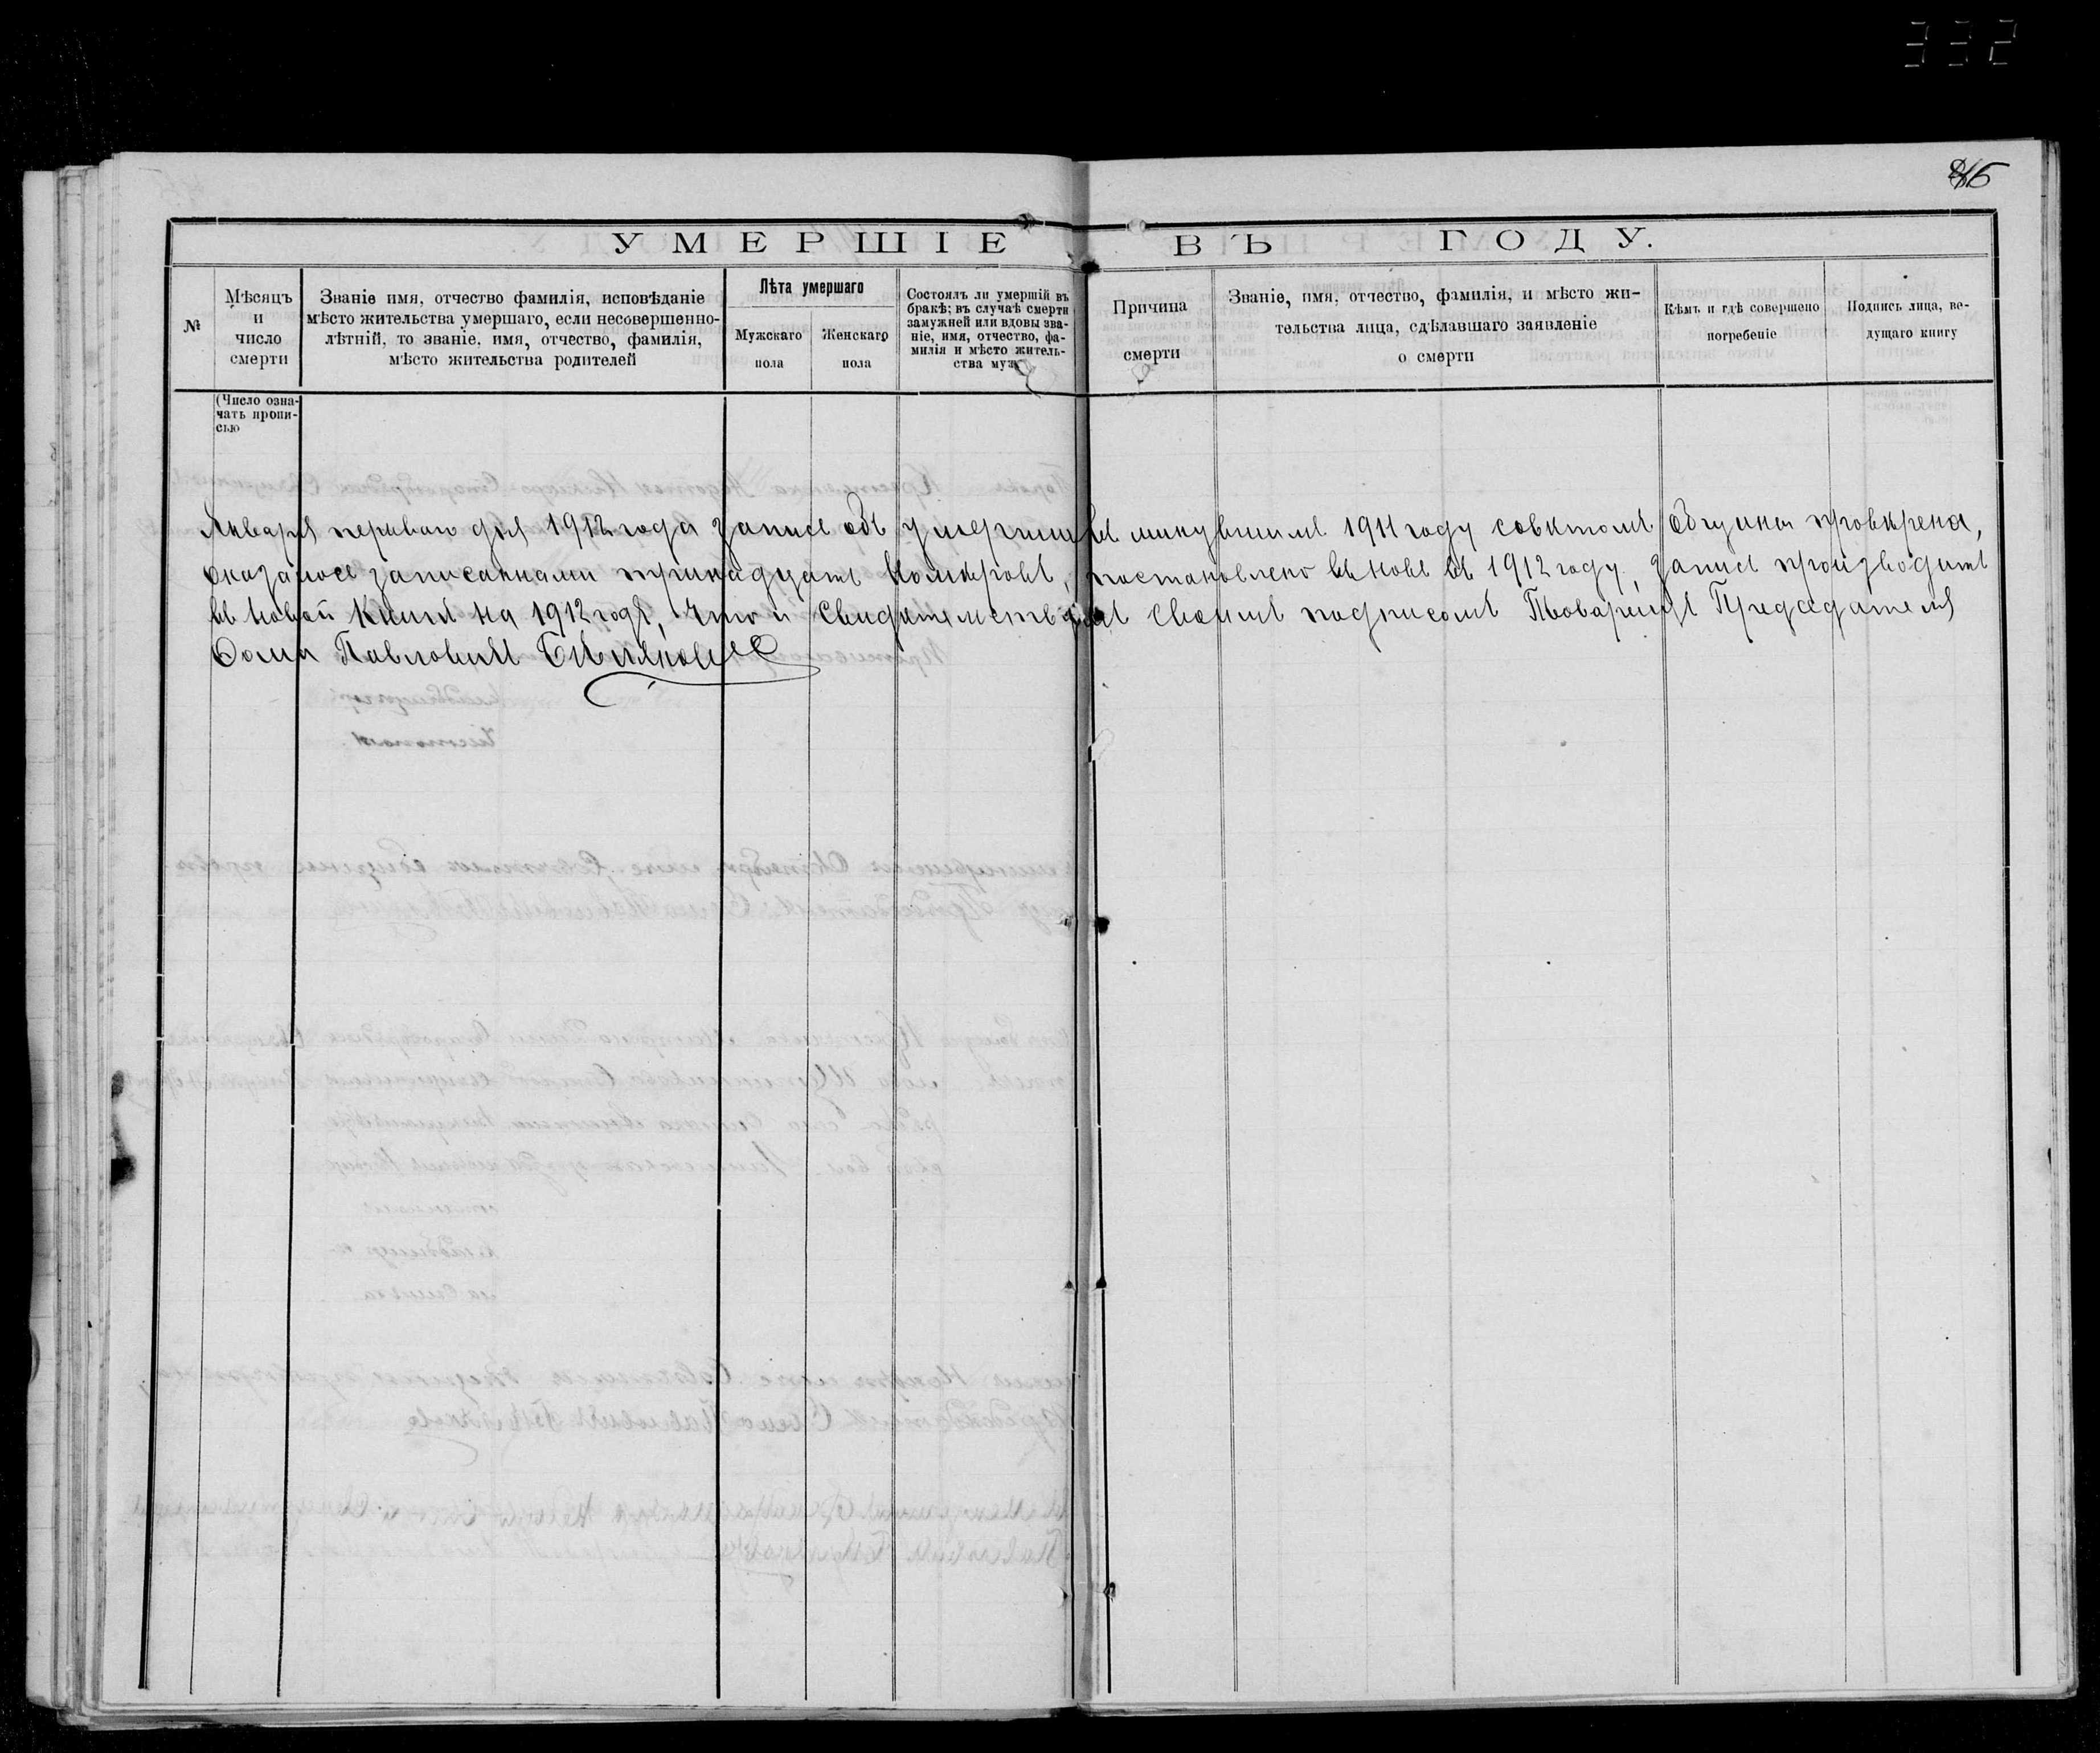 332
УМЕРШІЕ ВЪ ГОДУ.
№
Мѣсяцъ
и
число
смерти
Званіе имя, отчество фамилія, исповѣданіе
мѣсто жительства умершаго, если несовершенно-
лѣтній, то званіе, имя, отчество, фамилія,
мѣсто жительства родителей
Лѣта умершаго
Мужскаго
пола
Женскаго
пола
Состоялъ ли умершій въ
бракѣ; въ случаѣ смерти
замужней или вдовы зва-
ніе, имя, отчество, фа-
милія и мѣсто житель-
ства мужа
Причина
смерти
Званіе, имя, отчество, фамилія, и мѣсто жи-
тельства лица, сдѣлавшаго заявленіе
о смерти
Кѣмъ и гдѣ совершено
погребеніе
Подпись лица, ве-
дущаго книгу
(Число озна-
чать пропи-
сью
Января перваго дня 1912 года запись объ умерших въ минувшимъ 1911 году совѣтомъ общины провѣрена,
оказалось записанными тринадцать номѣровъ, постановлено въновь въ 1912 году, запись производить
въ новой книгѣ на 1912 годъ, что и свидѣтельствуютъ своимъ подписомъ Товарищъ Председателя
Фома Павловичъ